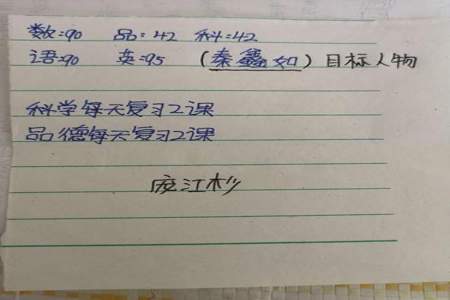 数:90 品:42 科:42
语:90 英:95 (秦鑫如) 目标人物
科学每天复习2课
品德每天复习2课
庞江杉